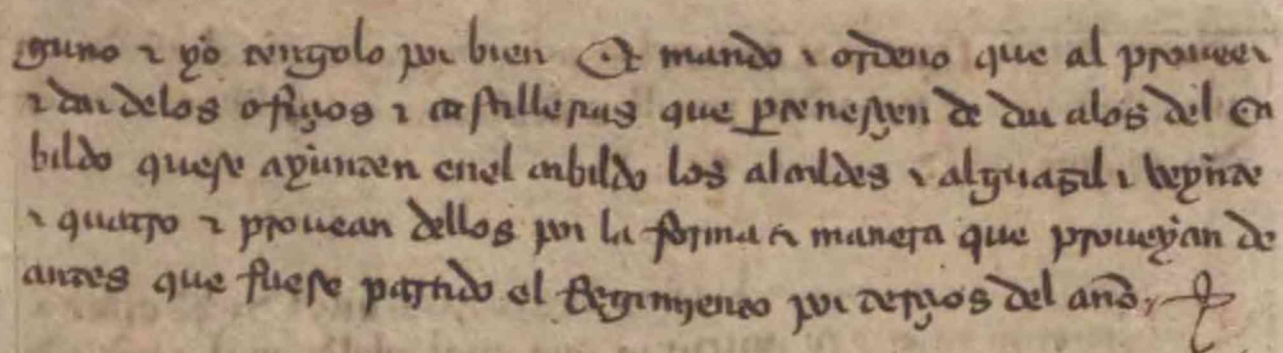 guno e yo tengolo por bien Et mando e ordeno que al proueer
e dar delos ofiçios e castillerias que pertenesçen de dar alos del ca
bildo quese ayunten enel cabildo los alcaldes e alguazil e veynte
e quatro e prouean dellos por la forma e manera que proueyan de
antes que fuese partido el Regimiento por terçios del año